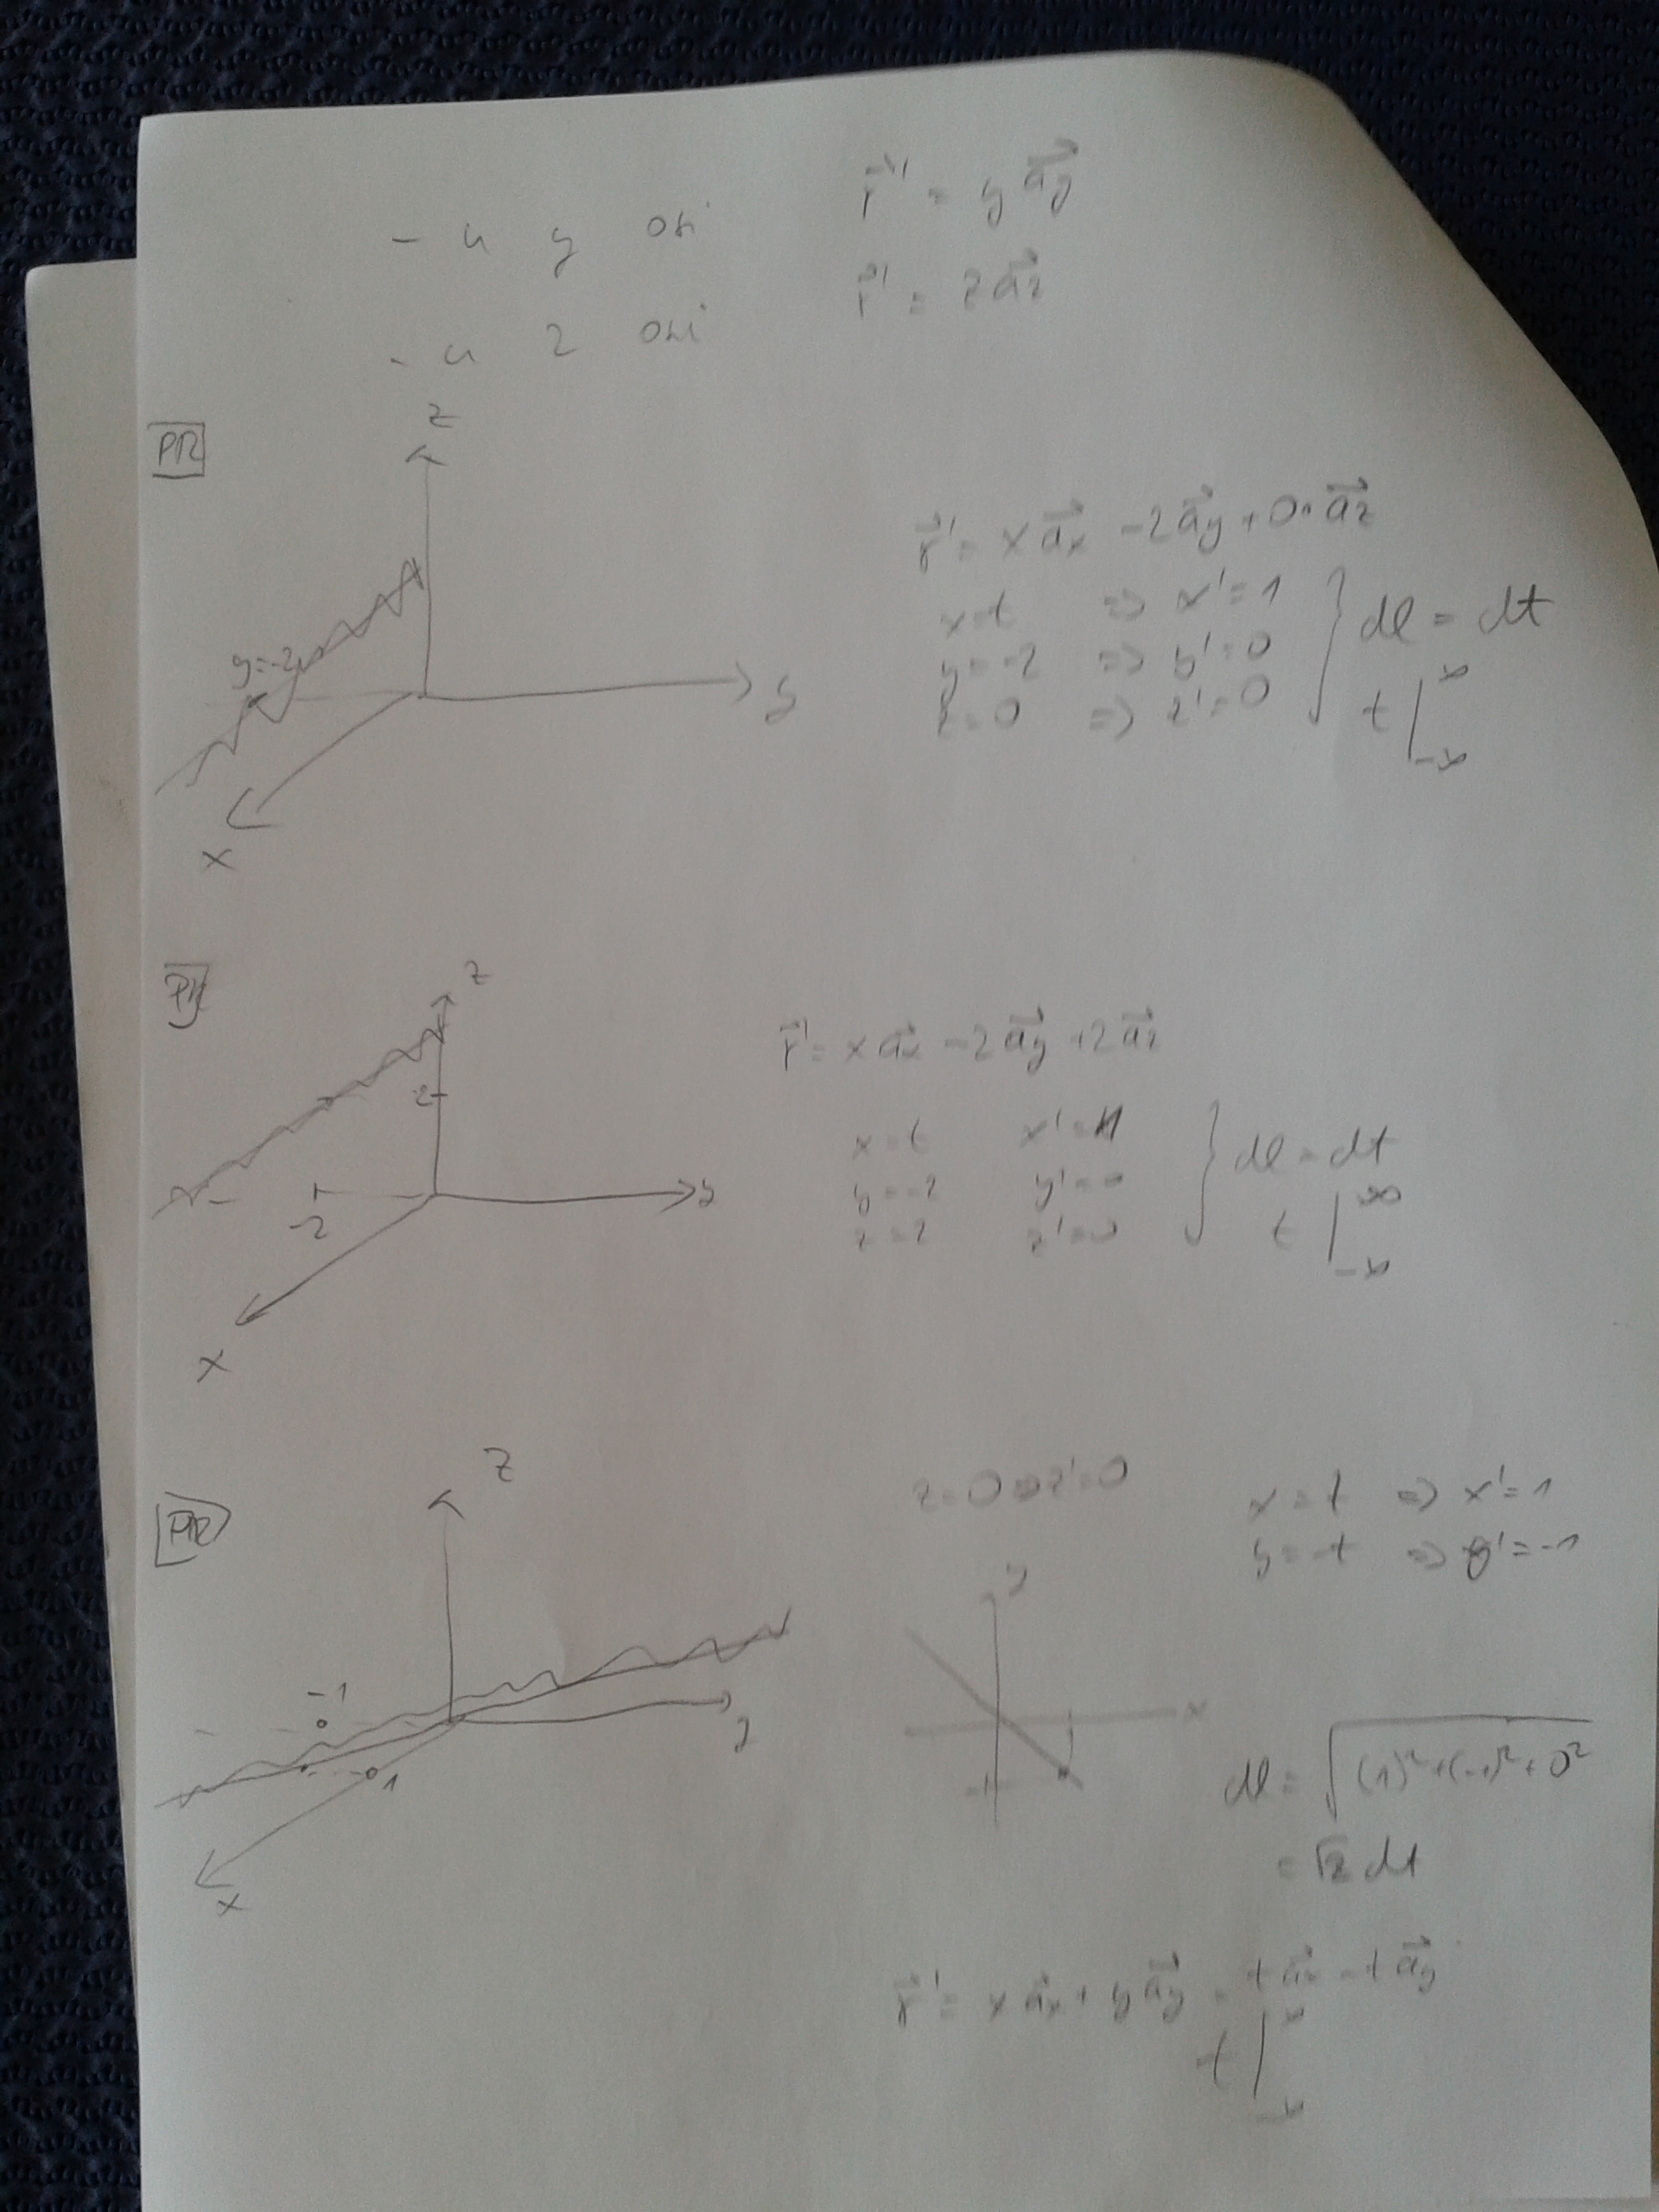 - u y osi r⃗' = y a⃗y
- u z osi r⃗' = z a⃗z
PR
z
y=-2
y
x
r⃗' = x a⃗x - 2 a⃗y + 0·a⃗z
x=t ⇒ x'=1
y=-2 ⇒ y'=0 } dl = dt
z=0 ⇒ z'=0 t |_{-∞}^{∞}
PR
z
2
-2
y
x
r⃗' = x a⃗x - 2 a⃗y + 2 a⃗z
x=t x'=1
y=-2 y'=0 } dl = dt
z=2 z'=0 t |_{-∞}^{∞}
PR
z
-1
1
y
x
z=0 ⇒ z'=0
x=t ⇒ x'=1
y=-t ⇒ y'=-1
y
x
-1
dl = √((1)²+(-1)²+0²)
= √2 dt
r⃗' = x a⃗x + y a⃗y = t a⃗x - t a⃗y
t |_{-∞}^{∞}